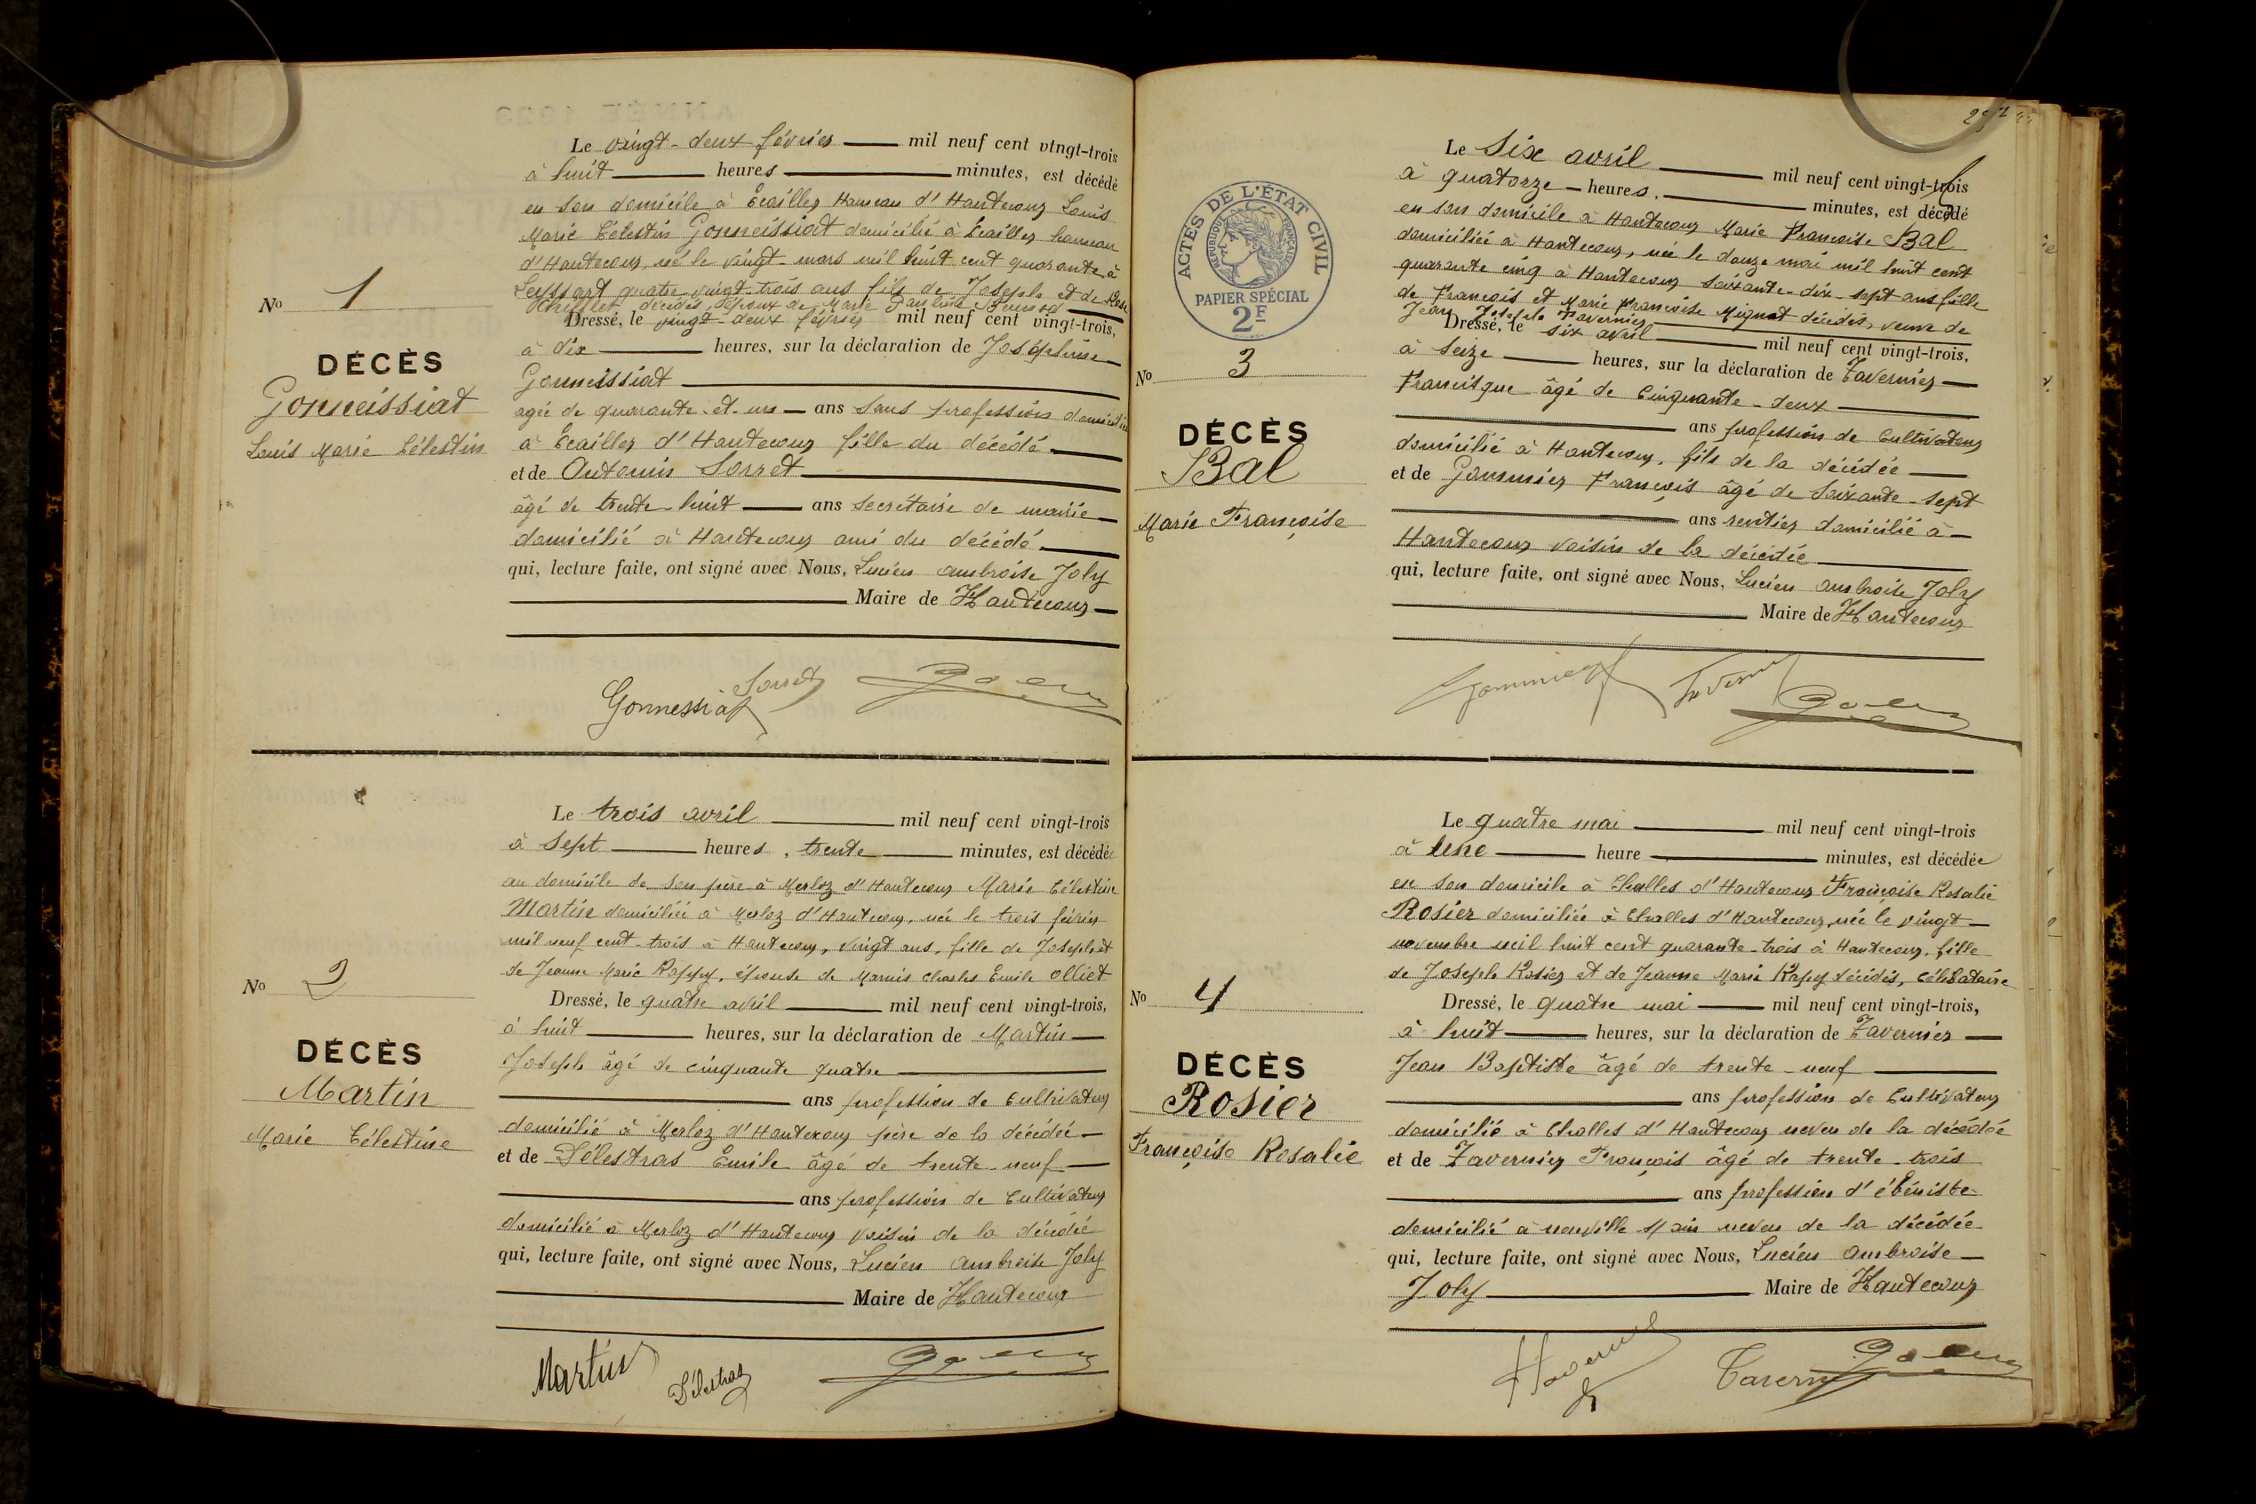 Le vingt-deux février mil neuf cent vingt-trois
à huit heures minutes, est décédé
en son domicile à Écailles Hameau d'Hautecour Louis
Marie Célestin Gonneissiat domicilié à Écailles hameau
d'Hautecour, né le vingt mars mil huit cent quarante à
Leyssard quatre vingt-trois ans fils de Joseph et de Rose
décédés, époux de Marie Pauline
Dressé, le vingt-deux février mil neuf cent vingt-trois,
à dix heures, sur la déclaration de Joséphine
Gonneissiat
agée de quarante-et-un ans sans profession domiciliée
à Écailles d'Hautecour fille du décédé
et de Antonin Sorret
âgé de trente-huit ans secrétaire de mairie
domicilié à Hautecour ami du décédé
qui, lecture faite, ont signé avec Nous, Lucien Ambroise Joly
Maire de Hautecour
No 1
DÉCÈS
Gonneissiat
Louis Marie Célestin
Sorret
Gonnessiat
Joly
Le trois avril mil neuf cent vingt-trois
à sept heures, trente minutes, est décédée
au domicile de son père à Merloz d'Hautecour Marie Célestine
Martin domiciliée à Merloz d'Hautecour, née le trois février
mil neuf cent-trois à Hautecour, vingt ans, fille de Joseph et
de Jeanne Marie Rappy, épouse de Marius Charles Emile Olliet
Dressé, le quatre avril mil neuf cent vingt-trois,
à huit heures, sur la déclaration de Martin
Joseph âgé de cinquante quatre
ans profession de Cultivateur
domicilié à Merloz d'Hautecour père de la décédée
et de Délestras Emile âgé de trente-neuf
ans profession de Cultivateur
domicilié à Merloz d'Hautecour voisin de la décédée
qui, lecture faite, ont signé avec Nous, Lucien Ambroise Joly
Maire de Hautecour
No 2
DÉCÈS
Martin
Marie Célestine
Martin
Délestras
Joly
ACTES DE L'ÉTAT CIVIL
RÉPUBLIQUE FRANÇAISE
PAPIER SPÉCIAL
2F
Le Six avril mil neuf cent vingt-trois
à quatorze heures. minutes, est décédé
en son domicile à Hautecour Marie Françoise Bal
domiciliée à Hautecour, née le douze mai mil huit cent
quarante cinq à Hautecour soixante-dix-sept ans fille
de François et Marie Françoise Mignot décédés, veuve de
Jean Joseph Tavernier
Dressé, le six avril mil neuf cent vingt-trois,
à seize heures, sur la déclaration de Tavernier
Francisque âgé de cinquante-deux
ans profession de Cultivateur
domicilié à Hautecour, fils de la décédée
et de Gommier François âgé de Soixante-sept
ans rentier domicilié à
Hautecour voisin de la décédée
qui, lecture faite, ont signé avec Nous, Lucien Ambroise Joly
Maire de Hautecour
No 3
DÉCÈS
Bal
Marie Françoise
Gommier
Tavernier
Joly
Le quatre mai mil neuf cent vingt-trois
à une heure minutes, est décédée
en son domicile à Challes d'Hautecour Françoise Rosalie
Rosier domiciliée à Challes d'Hautecour, née le vingt
novembre mil huit cent quarante-trois à Hautecour, fille
de Joseph Rosier et de Jeanne Marie Rapy décédés, célibataire
Dressé, le quatre mai mil neuf cent vingt-trois,
à huit heures, sur la déclaration de Tavernier
Jean Baptiste âgé de trente-neuf
ans profession de Cultivateur
domicilié à Challes d'Hautecour neveu de la décédée
et de Tavernier François âgé de trente-trois
ans profession d'ébéniste
domicilié à neuville s/ ain neveu de la décédée
qui, lecture faite, ont signé avec Nous, Lucien Ambroise
Joly Maire de Hautecour
No 4
DÉCÈS
Rosier
Françoise Rosalie
Tavernier
Tavernier
Joly